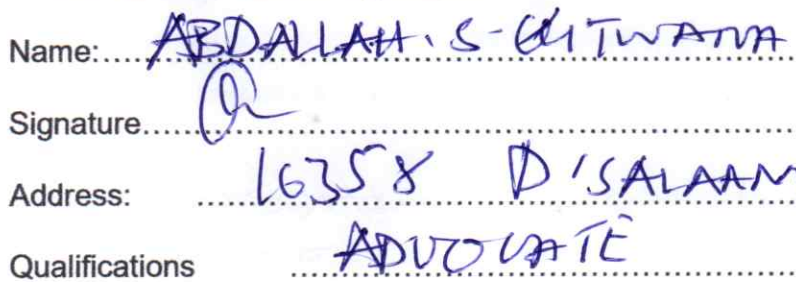 Name: ABDALLAH. S. GITWANA
Signature
Address: 16358 D'SALAAM
Qualifications ADVOCATE